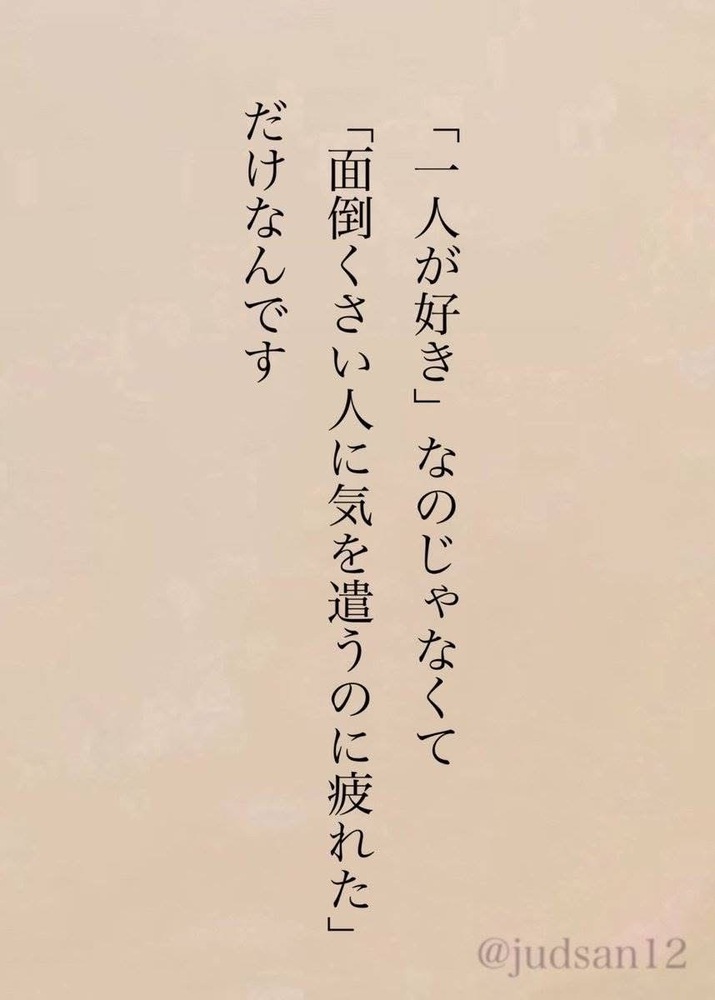 「一人が好き」なのじゃなくて
「面倒くさい人に気を遣うのに疲れた」
だけなんです
@judsan12